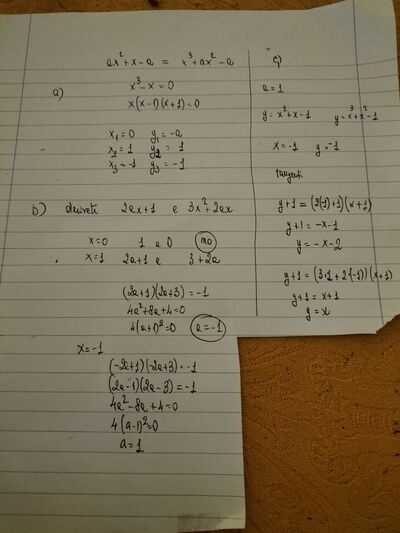 ax² + x - a = x³ + ax² - a
a) x³ - x = 0
x(x-1)(x+1) = 0
x₁ = 0 y₁ = -a
x₂ = 1 y₂ = 1
x₃ = -1 y₃ = -1
b) derivate 2ax+1 e 3x²+2ax
x=0 1 e 0 no
x=1 2a+1 e 3+2a
(2a+1)(2a+3) = -1
4a²+8a+4=0
4(a+1)²=0 a=-1
x=-1
(-2a+1)(-2a+3)=-1
(2a-1)(2a-3)=-1
4a²-8a+4=0
4(a-1)²=0
a=1
c)
a=1
y=x²+x-1 y=x³+x²-1
x=-1 y=-1
tangenti
y+1=(2(-1)+1)(x+1)
y+1=-x-1
y=-x-2
y+1=(3·1+2(-1))(x+1)
y+1=x+1
y=x